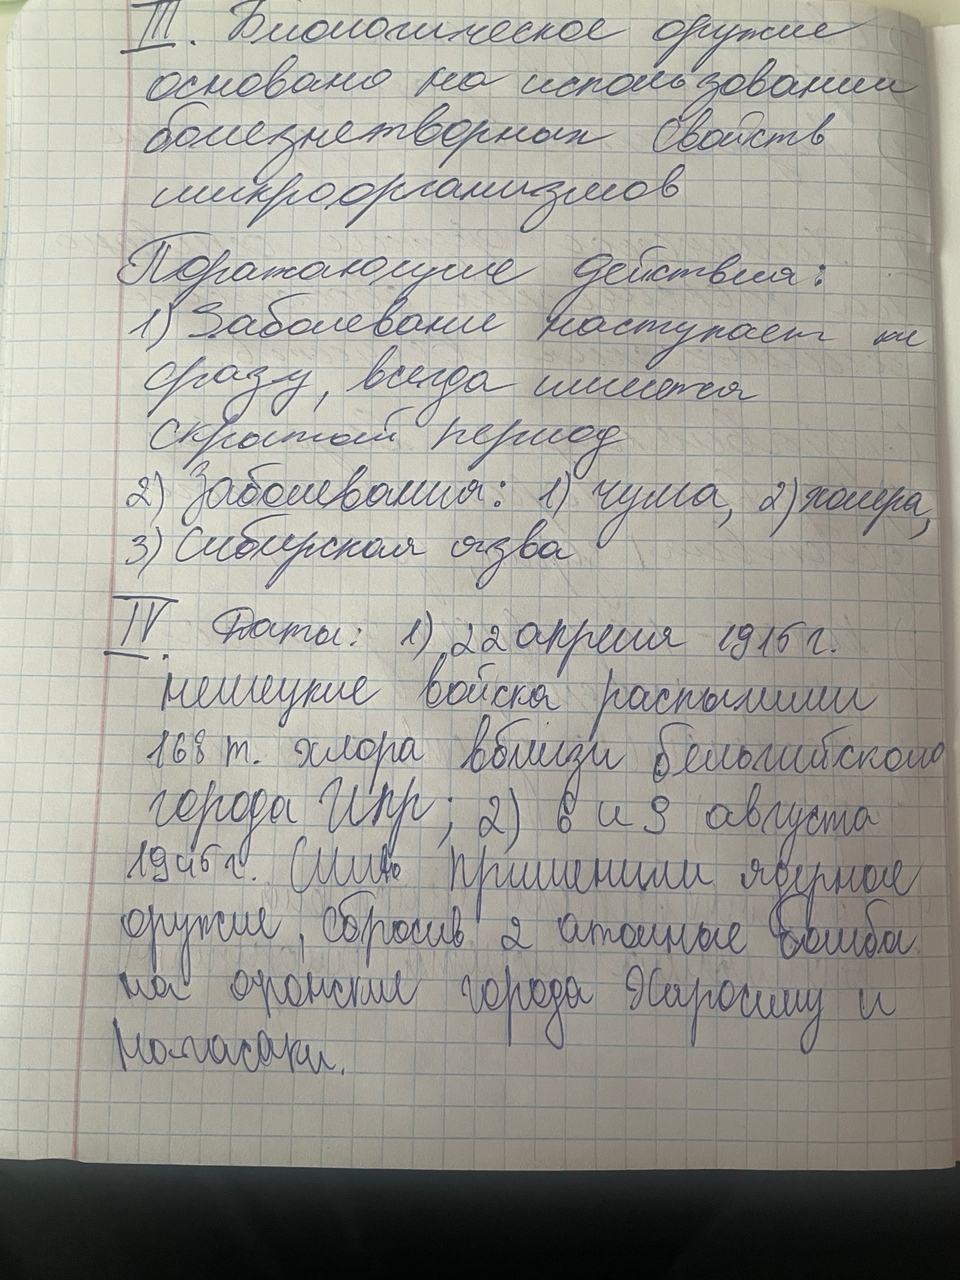 III. Биологическое оружие
основано на использовании
болезнетворных свойств
микроорганизмов
Поражающие действия:
1) Заболевание наступает не
сразу, всегда имеется
скрытый период
2) Заболевания: 1) чума, 2) холера,
3) Сибирская язва
IV. Даты: 1) 22 апреля 1915 г.
немецкие войска распылили
168 т. хлора вблизи бельгийского
города Ипр; 2) 6 и 9 августа
1945 г. США применили ядерное
оружие, сбросив 2 атомные бомбы
на японские города Хиросиму и
Нагасаки.